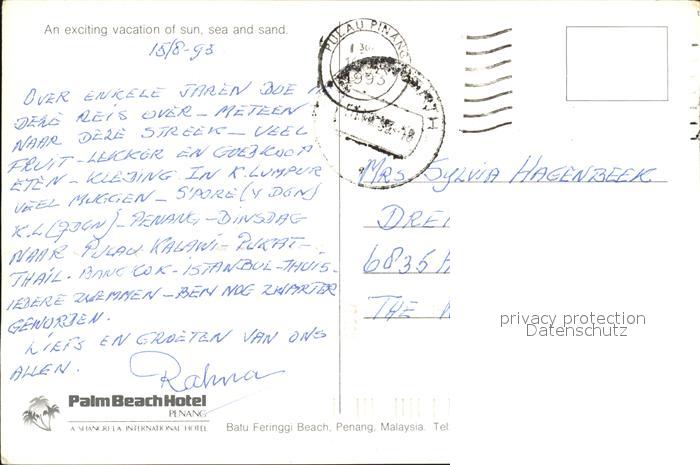 An exciting vacation of sun, sea and sand.
15/8-93
OVER ENKELE JAREN DOE IK
DEZE REIS OVER - METEEN
NAAR DEZE STREEK - VEEL
FRUIT - LEKKER EN GOEDKOOP
ETEN - KLEDING IN K. LUMPUR
VEEL MUGGEN - S'PORE (4 DGN)
K.L (7 DGN) - PENANG - DINSDAG
NAAR PULAU - PUKAT -
THAIL. BANGKOK - ISTANBUL - THUIS.
IEDERE ZWEMMEN - BEN NOG ZWARTER
GEWORDEN.
LIEFS EN GROETEN VAN ONS
ALLEN.
PalmBeachHotel
PENANG
A SHANGRI-LA INTERNATIONAL HOTEL
PULAU PINANG
1993
MRS SYLVIA HAGENBEEK
DREI
6835
THE
privacy protection
Datenschutz
Batu Feringgi Beach, Penang, Malaysia. Tel: